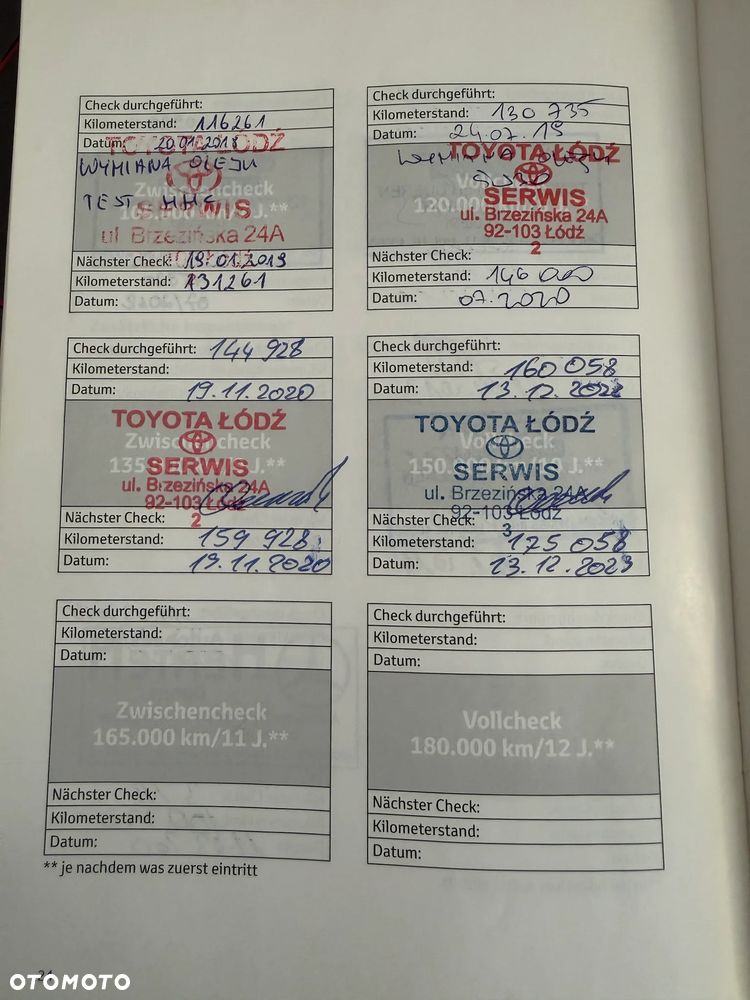 Check durchgeführt:
Kilometerstand: 116261
Datum: 20.01.2018
TOYOTA ŁÓDŹ
WYMIANA OLEJU
Zwischencheck
TEST HHS
105.000 km/7 J.**
SERWIS
ul. Brzezińska 24A
Nächster Check: 19.01.2019
Kilometerstand: 131261
Datum:
Check durchgeführt:
Kilometerstand: 130 735
Datum: 24.07.19
TOYOTA ŁÓDŹ
Vollcheck
120.000 km
SERWIS
ul. Brzezińska 24A
92-103 Łódź
2
Nächster Check:
Kilometerstand: 146 000
Datum: 07.2020
Check durchgeführt: 144 928
Kilometerstand:
Datum: 19.11.2020
TOYOTA ŁÓDŹ
Zwischencheck
135.000 km/9 J.**
SERWIS
ul. Brzezińska 24A
92-103 Łódź
2
Nächster Check:
Kilometerstand: 159 928
Datum: 19.11.2020
Check durchgeführt:
Kilometerstand: 160 058
Datum: 13.12.2022
TOYOTA ŁÓDŹ
Vollcheck
150.000 km/10 J.**
SERWIS
ul. Brzezińska 24A
92-103 Łódź
3
Nächster Check:
Kilometerstand: 175 058
Datum: 13.12.2023
Check durchgeführt:
Kilometerstand:
Datum:
Zwischencheck
165.000 km/11 J.**
Nächster Check:
Kilometerstand:
Datum:
Check durchgeführt:
Kilometerstand:
Datum:
Vollcheck
180.000 km/12 J.**
Nächster Check:
Kilometerstand:
Datum:
** je nachdem was zuerst eintritt
OTOMOTO